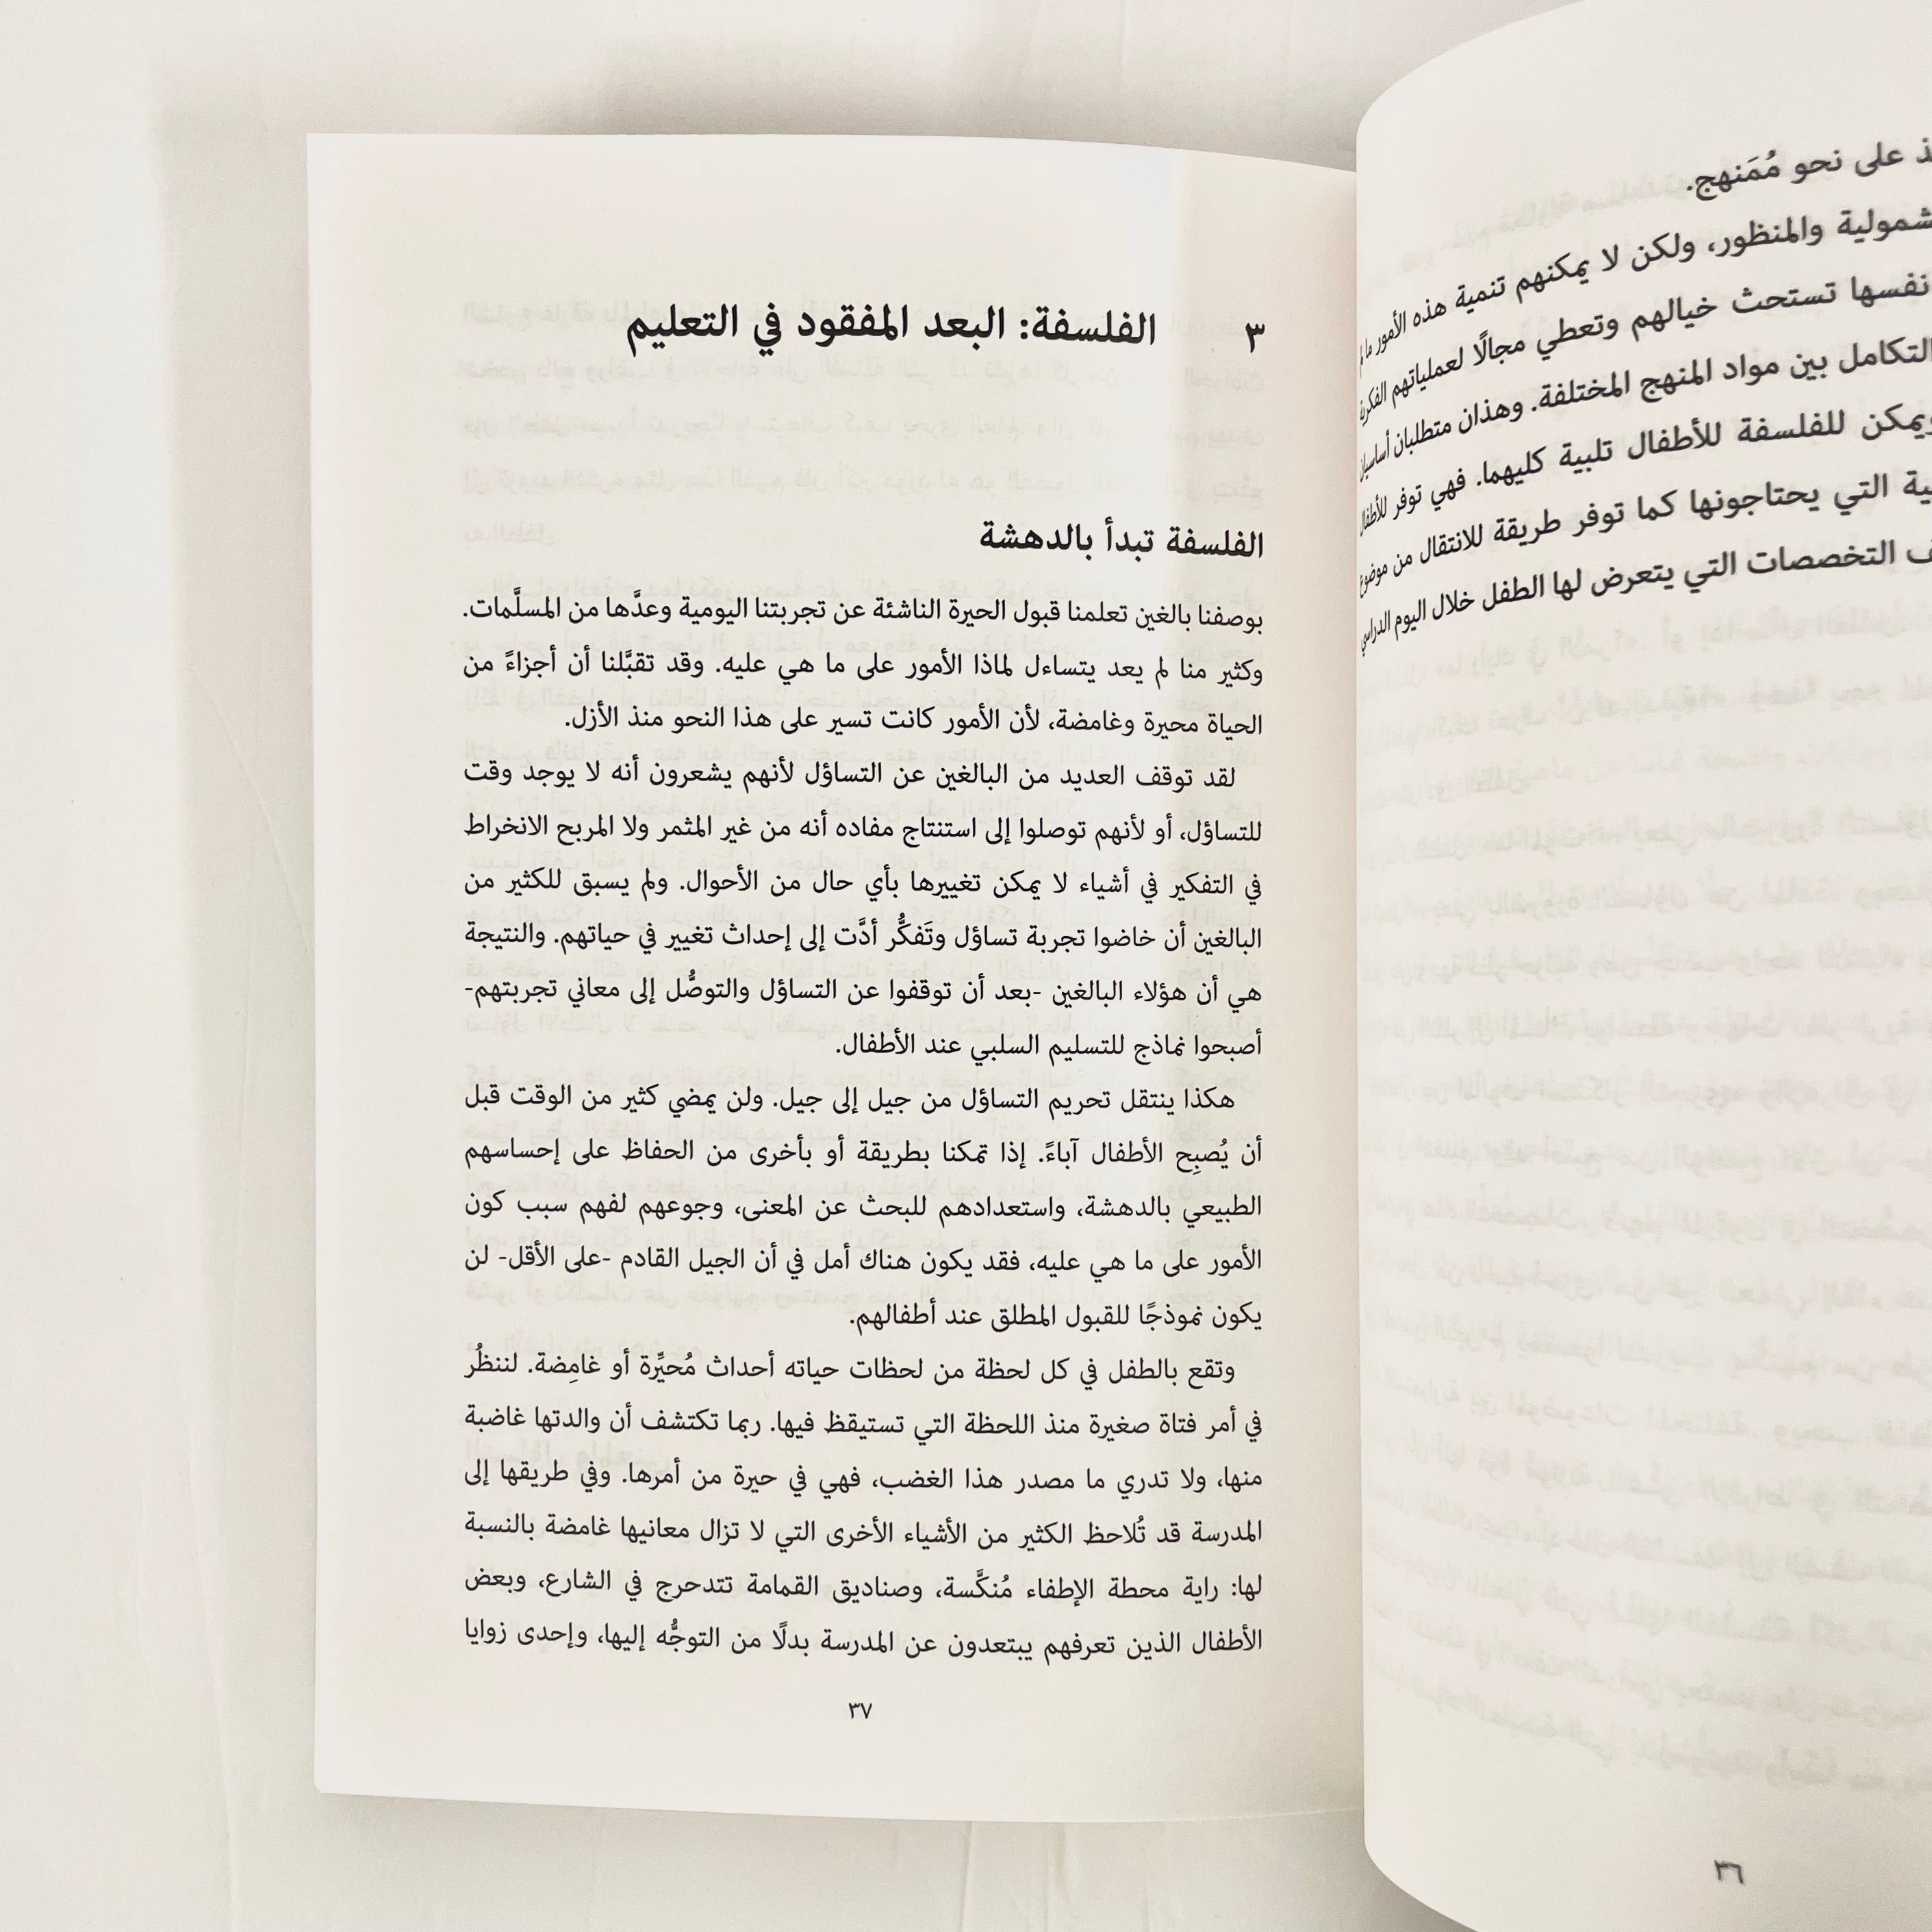 ذ على نحو مُمَنهج.
شمولية والمنظور، ولكن لا يمكنهم تنمية هذه الأمور ما لم
نفسها تستحث خيالهم وتعطي مجالًا لعملياتهم الفكرية
التكامل بين مواد المنهج المختلفة. وهذان متطلبان أساسيان
ويمكن للفلسفة للأطفال تلبية كليهما. فهي توفر للأطفال
ية التي يحتاجونها كما توفر طريقة للانتقال من موضوع
ف التخصصات التي يتعرض لها الطفل خلال اليوم الدراسي
٣٦
٣ الفلسفة: البعد المفقود في التعليم
الفلسفة تبدأ بالدهشة
بوصفنا بالغين تعلمنا قبول الحيرة الناشئة عن تجربتنا اليومية وعدَّها من المسلَّمات.
وكثير منا لم يعد يتساءل لماذا الأمور على ما هي عليه. وقد تقبَّلنا أن أجزاءً من
الحياة محيرة وغامضة، لأن الأمور كانت تسير على هذا النحو منذ الأزل.
لقد توقف العديد من البالغين عن التساؤل لأنهم يشعرون أنه لا يوجد وقت
للتساؤل، أو لأنهم توصلوا إلى استنتاج مفاده أنه من غير المثمر ولا المربح الانخراط
في التفكير في أشياء لا يمكن تغييرها بأي حال من الأحوال. ولم يسبق للكثير من
البالغين أن خاضوا تجربة تساؤل وتَفكُّر أدَّت إلى إحداث تغيير في حياتهم. والنتيجة
هي أن هؤلاء البالغين -بعد أن توقفوا عن التساؤل والتوصُّل إلى معاني تجربتهم-
أصبحوا نماذج للتسليم السلبي عند الأطفال.
هكذا ينتقل تحريم التساؤل من جيل إلى جيل. ولن يمضي كثير من الوقت قبل
أن يُصبِح الأطفال آباءً. إذا تمكنا بطريقة أو بأخرى من الحفاظ على إحساسهم
الطبيعي بالدهشة، واستعدادهم للبحث عن المعنى، وجوعهم لفهم سبب كون
الأمور على ما هي عليه، فقد يكون هناك أمل في أن الجيل القادم -على الأقل- لن
يكون نموذجًا للقبول المطلق عند أطفالهم.
وتقع بالطفل في كل لحظة من لحظات حياته أحداث مُحيِّرة أو غامِضة. لننظُر
في أمر فتاة صغيرة منذ اللحظة التي تستيقظ فيها. ربما تكتشف أن والدتها غاضبة
منها، ولا تدري ما مصدر هذا الغضب، فهي في حيرة من أمرها. وفي طريقها إلى
المدرسة قد تُلاحظ الكثير من الأشياء الأخرى التي لا تزال معانيها غامضة بالنسبة
لها: راية محطة الإطفاء مُنكَّسة، وصناديق القمامة تتدحرج في الشارع، وبعض
الأطفال الذين تعرفهم يبتعدون عن المدرسة بدلًا من التوجُّه إليها، وإحدى زوايا
٣٧